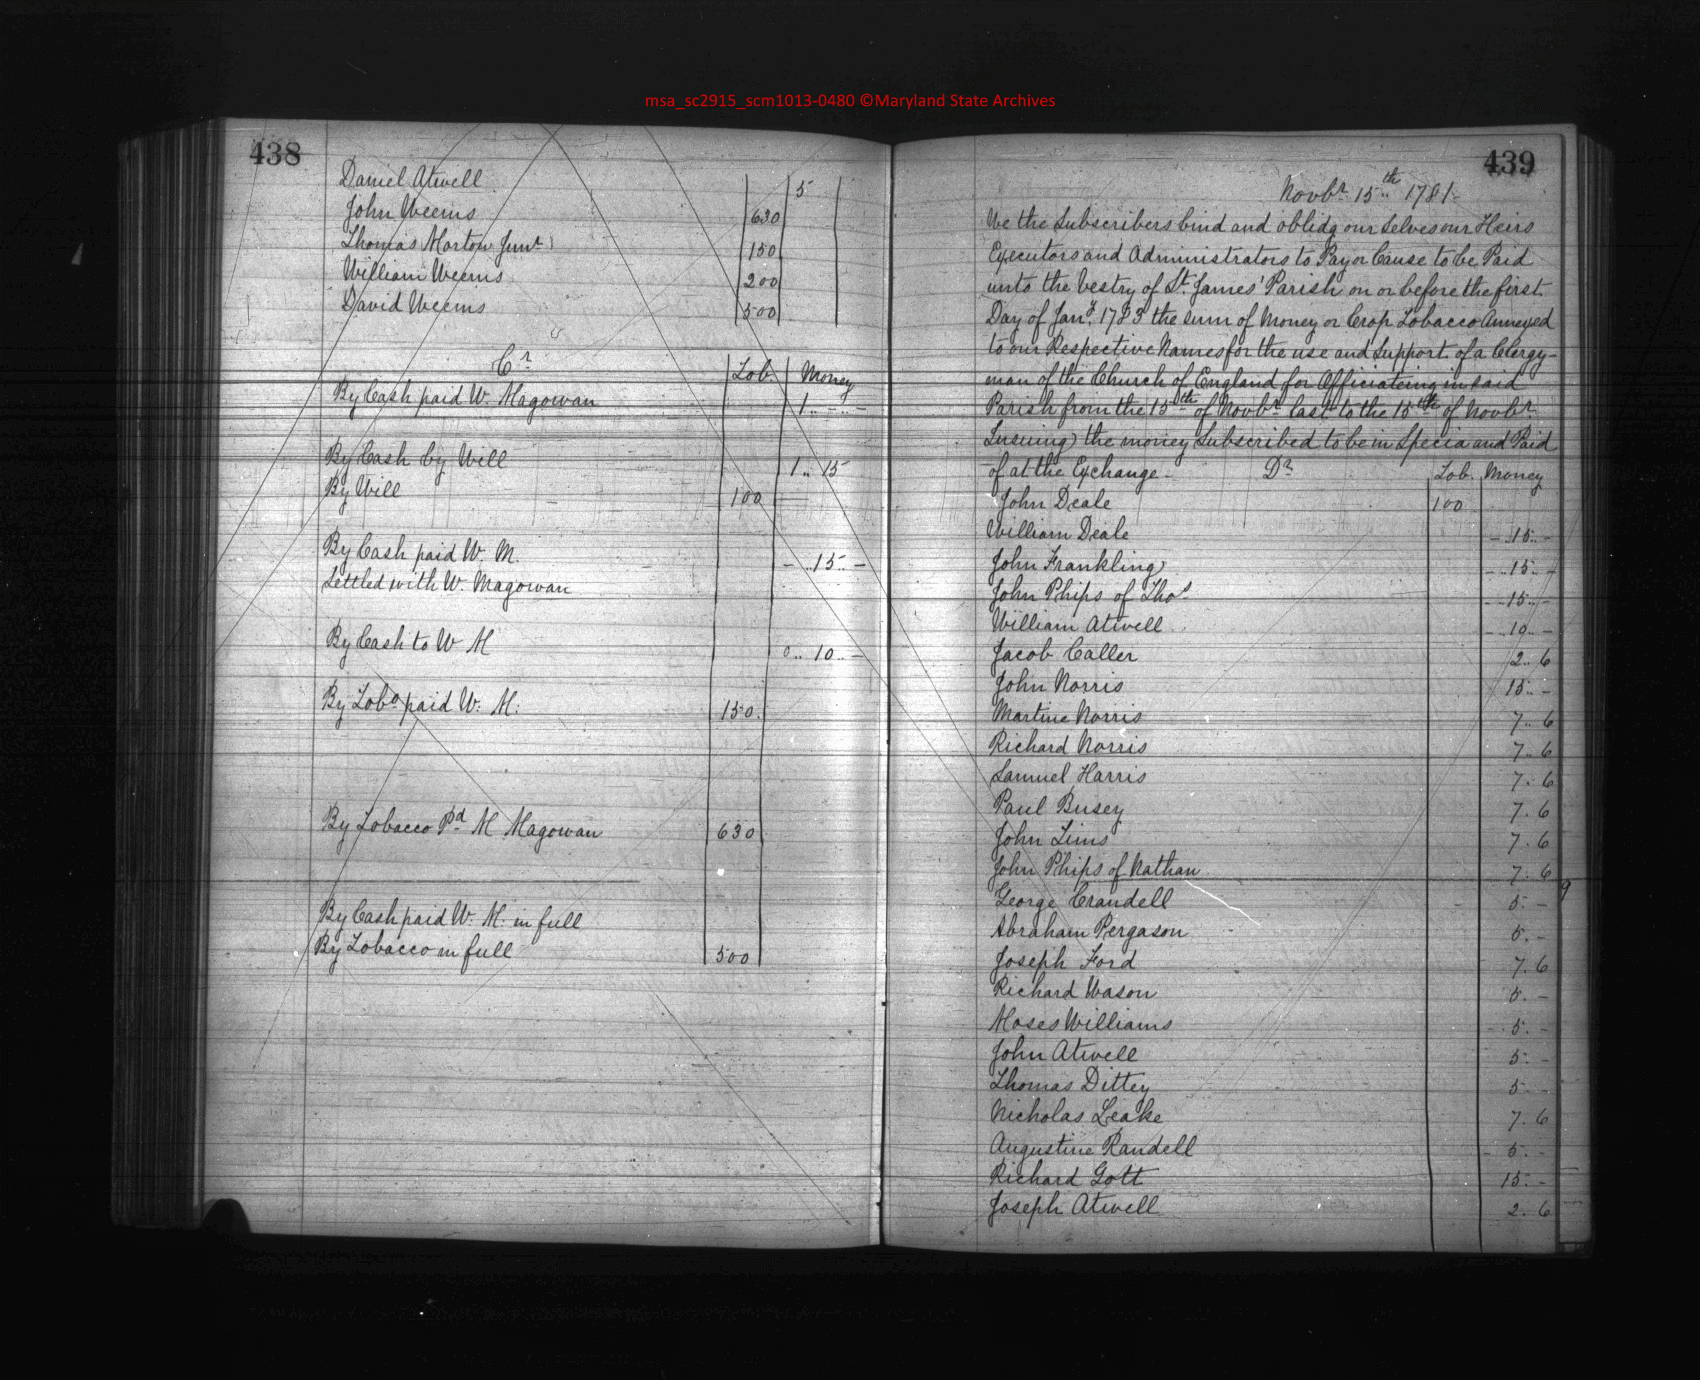 msa_sc2915_scm1013-0480 ©Maryland State Archives
438
Daniel Atwell 5
John Weems 630
Thomas Morton Junr 150
William Weems 200
David Weems 500
Cr Tob. Money
By Cash paid W. Magowan 1.. -..-
By Cash by Will 1.. 15
By Will 100
By Cash paid W. M. -..15..-
Settled with W. Magowan
By Cash to W M 0.. 10..-
By Tobo paid W. M. 150.
By Tobacco Pd M Magowan 630
By Cash paid W. M. in full
By Tobacco in full 500
439
Novbr 15th 1781-
We the Subscribers bind and oblidg our Selves our Heirs
Executors and Administrators to Pay or Cause to be Paid
unto the Vestry of St. James' Parish on or before the first
Day of Jany. 1783 the sum of Money or Crop Tobacco Annexed
to our Respective Names for the use and Support of a Clergy-
man of the Church of England for Officiatering in said
Parish from the 15th of Novbr last to the 15th of Novbr
Insuing) the money Subscribed to be in Specia and Paid
of at the Exchange- Dr Tob. Money
John Deale 100
William Deale -..15..-
John Frankling -..15..-
John Phips of Thos -..15..-
William Atwell -..10..-
Jacob Caller 2.. 6
John Norris 15..-
Martine Norris 7.. 6
Richard Norris 7.. 6
Samuel Harris 7. 6
Paul Busey 7. 6
John Tims 7. 6
John Phips of Nathan 7. 6
George Crandell 5.-
Abraham Pergason 5.-
Joseph Ford 7. 6
Richard Wason 5.-
Moses Williams -5.-
John Atwell 5 -
Thomas Dittey 5 -
Nicholas Leake 7. 6
Augustine Randell -5.-
Richard Gott 15.-
Joseph Atwell 2. 6